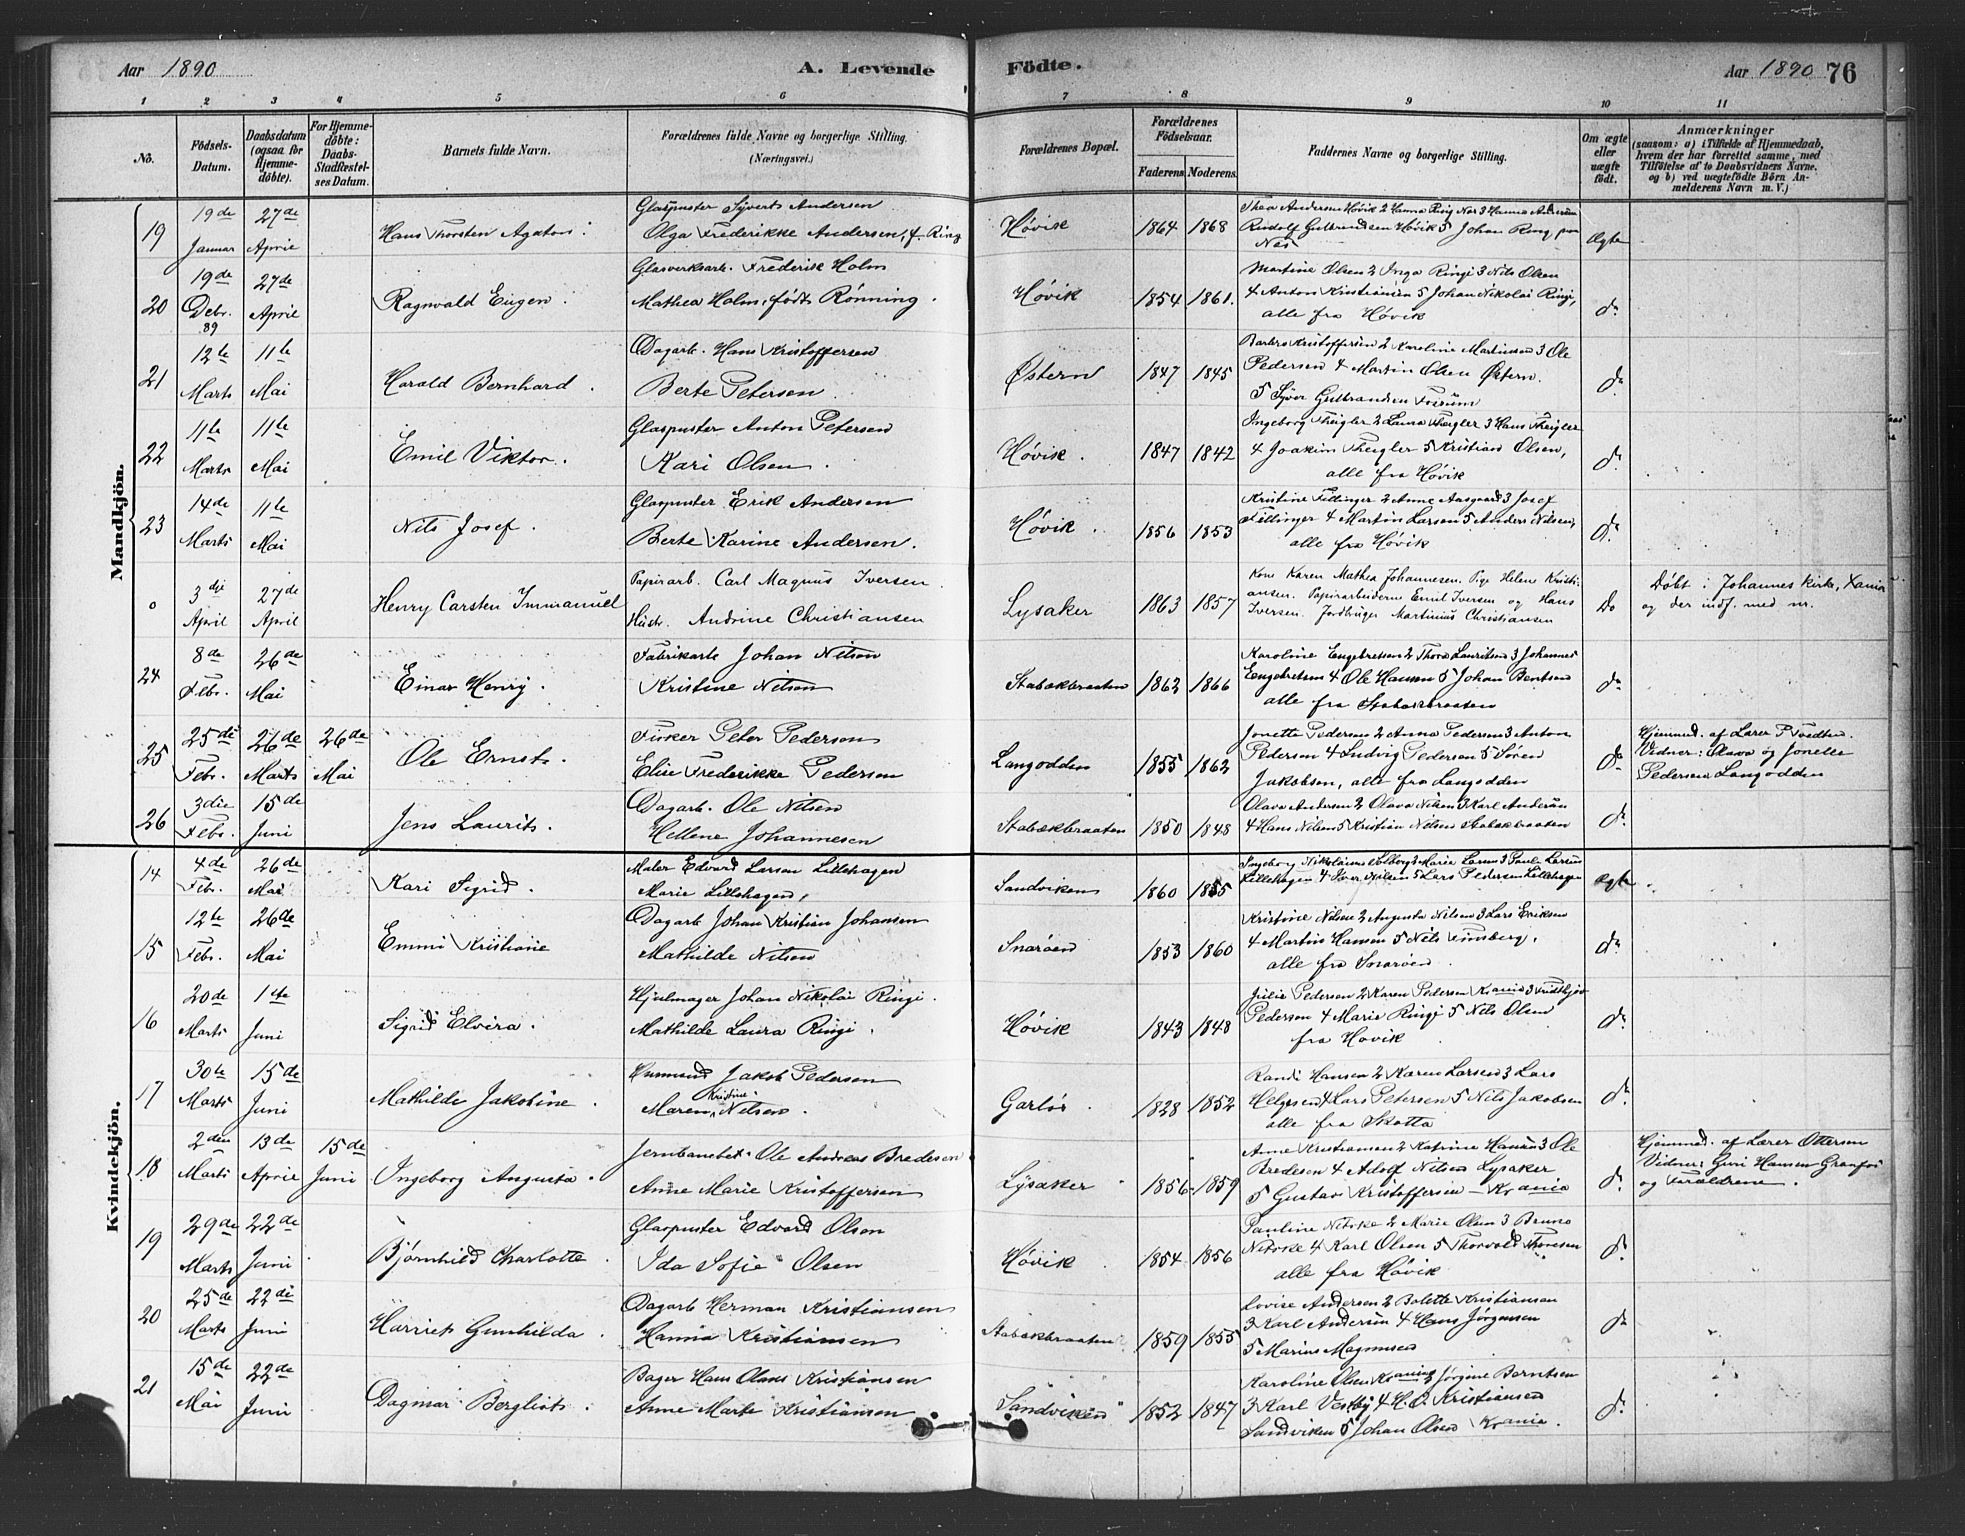 Aar 1890 A. Levende Födte. Aar 1890 76
1 2 3 4 5 6 7 8 9 10 11
No. Födsels-Datum. Daabsdatum (ogsaa for Hjemme-döbte). For Hjemme-döbte: Daabs-Stadfæstel-ses Datum. Barnets fulde Navn. Forældrenes fulde Navne og borgerlige Stilling. (Næringsvei.) Forældrenes Bopæl. Forældrenes Födselsaar. Faderens Moderens. Faddernes Navne og borgerlige Stilling. Om ægte eller uægte født. Anmærkninger (saasom: a) i Tilfælde af Hjemmedaab, hvem der har forrettet samme, med Tilföielse af to Daabsvidners Navne, og b) ved uægtefödte Börn An-melderens Navn m. V.)
Mandkjön.
19 19de Januar 27de April Hans Thorsten Agaton. Glaspuster Syverts Andersen
Olga Frederikke Andersen, f. Ring Høvik 1864 1868 Thea Andersen Høvik 2 Hanna Ring Nes 3 Hanna Andersen
Rudolf Gulbrandsen Høvik 5 Johan Ring
Nes Ægte
20 19de Debr. 89 27de April Ragnvald Eugen. Glasverksarb. Frederik Holm
Mathea Holm, født Rønning. Høvik 1854 1861. Martine Olsen 2 Inga Ringi 3 Nils Olsen
4 Anton Kristiansen 5 Johan Nikolai Ringi,
alle fra Høvik do
21 12te Marts 11te Mai Harald Bernhard. Dagarb. Hans Kristoffersen
Berte Petersen Østern 1847 1845 Barbro Kristoffersen 2 Karoline Martinsen 3 Ole
Pedersen 4 Martin Olsen Østern.
5 Syver Gulbrandsen Fossum do
22 11te Marts 11te Mai Emil Viktor. Glaspuster Anton Petersen
Kari Olsen. Høvik. 1847 1842 Ingeborg Theigler 2 Laura Theigler 3 Hans Theigler
4 Joakim Theigler 5 Kristian Olsen,
alle fra Høvik do
23 14de Marts 11te Mai Nils Josef. Glaspuster Erik Andersen
Berte Karine Andersen. Høvik. 1856 1853 Kristine Fillinger 2 Anne Aasgaard 3 Josef
Fillinger 4 Martin Larsen 5 Anders Nilsen,
alle fra Høvik do
o 3die April 27de April Henry Carsten Immanuel Papirarb. Carl Magnus Iversen.
Hustr. Andrine Christiansen Lysaker 1863 1857 Kone Karen Mathea Johannesen. Pige Helene Kristi-
ansen. Papirarbeiderne Emil Iversen og Hans
Iversen. Jordbruger Martinius Christiansen Do Døbt i Johannes kirke, Xania
og der indf. med nr.
24 8de Febr. 26de Mai Einar Henry. Fabrikarb Johan Nilsen
Kristine Nilsen Stabækbraaten 1862 1866 Karoline Engebretsen 2 Thora Lauritsen 3 Johannes
Engebretsen 4 Ole Hansen 5 Johan Bentsen
alle fra Stabækbraaten do
25 25de Febr. 26de Marts 26de Mai Ole Ernst. Fisker Peter Pedersen
Elise Frederikke Pedersen Langodden 1855 1862 Jonette Pedersen 2 Anna Pedersen 3 Anton
Pedersen 4 Ludvig Pedersen 5 Søren
Jakobsen, alle fra Langodden do Hjemmed. af Lærer P Tvedten
Vidner: Olava og Jonette
Pedersen Langodden
26 3die Febr. 15de Juni Jens Laurits. Dagarb. Ole Nilsen
Hellene Johannesen Stabækbraaten 1850 1848 Olava Andersen 2 Olava Nilsen 3 Karl Andersen
4 Hans Nilsen 5 Kristian Nilsen Stabækbraaten do
Kvindekjön.
14 4de Febr. 26de Mai Kari Sigrid. Maler Edvard Larsen Lillehagen
Marie Lillehagen, Sandviken 1860 1855 Ingeborg Nikolaisen Solberg 2 Marie Larsen 3 Paul Larsen
Lillehagen 4 Iver Nilsen 5 Lars Pedersen Lillehagen ægte
15 12te Febr. 26de Mai Emmi Kristiane Dagarb Johan Kristian Johansen
Mathilde Nilsen Snarøen 1853 1860 Kristine Nilsen 2 Augusta Nilsen 3 Lars Eriksen
4 Martin Hansen 5 Nils Tunsberg.
alle fra Snarøen. do
16 20de Marts 1ste Juni Sigrid Elvira. Hjulmager Johan Nikolai Ringi.
Mathilde Laura Ringi. Høvik 1843 1848 Julie Pedersen 2 Karen Pedersen Krania 3 Fridthjov
Pedersen 4 Marie Ringi 5 Nils Olsen
fra Høvik do
17 30te Marts 15de Juni Mathilde Jakobine. Husmand Jakob Pedersen
Maren Kristine Nilsen. Garløs. 1828 1852 Randi Hansen 2 Karen Larsen 3 Lars
Helgesen 4 Lars Petersen 5 Nils Jakobsen
alle fra Skotta do
18 2den Marts 13de April 15de Juni Ingeborg Augusta. Jernbanebet. Ole Andreas Bredesen
Anne Marie Kristoffersen Lysaker 1856 1859 Anne Kristiansen 2 Katrine Hansen 3 Ole
Bredesen 4 Adolf Nilsen Lysaker
5 Gustav Kristoffersen - Krania do Hjemmed. af Lærer Ottersen
Vidner: Guri Hansen Granfos
og Forældrene.
19 29de Marts 22de Juni Bjørnhild Charlotte. Glaspuster Edvard Olsen
Ida Sofie Olsen Høvik 1854 1856 Pauline Nitvke 2 Marie Olsen 3 Bruno
Nitvke 4 Karl Olsen 5 Thorvald Thoresen
alle fra Høvik do
20 25de Marts 22de Juni Harriet Gunhilda. Dagarb Herman Kristiansen
Hanna Kristiansen Stabækbraaten 1859 1855 Lovise Andersen 2 Bolette Kristiansen
3 Karl Andersen 4 Hans Jørgensen
5 Marius Magnusen do
21 15de Mai 22de Juni Dagmar Bergliot. Bager Hans Olaus Kristiansen
Anne Marte Kristiansen Sandviken 1852 1847 Karoline Olsen Krania 2 Jørgine Berntsen
3 Karl Vestby 4 H. O. Kristiansen
Sandviken 5 Johan Olsen Krania. do